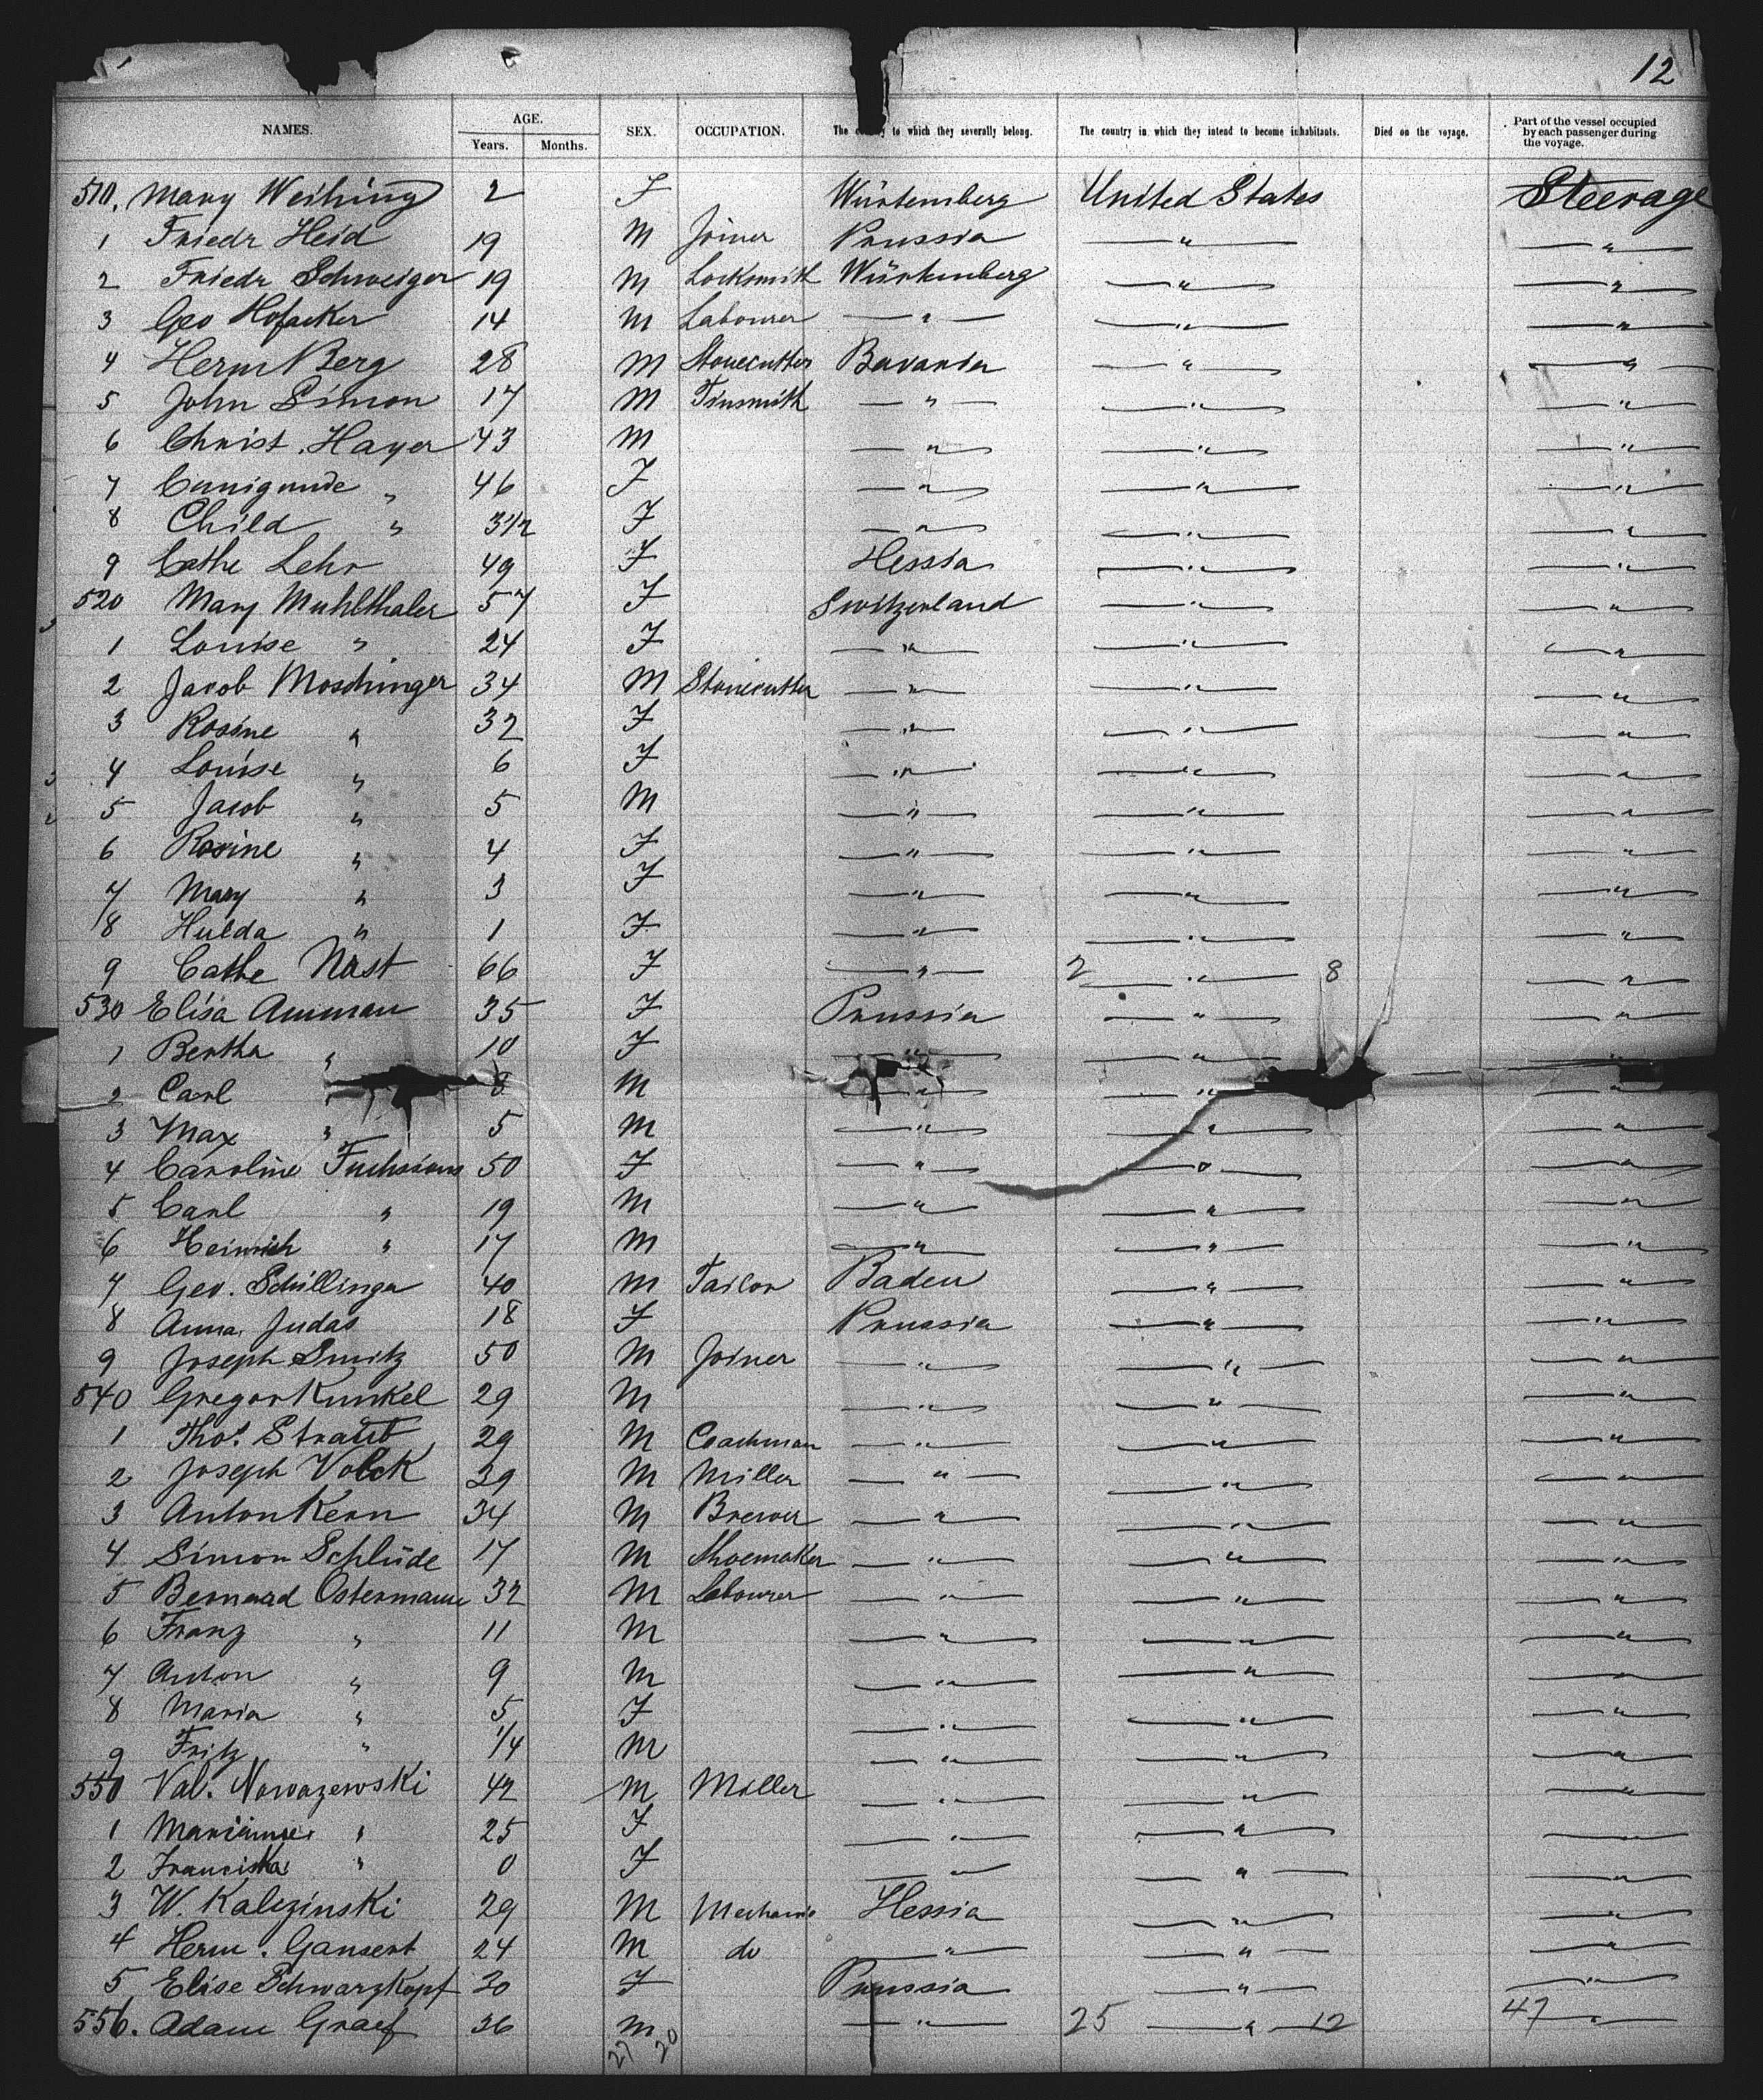 12
NAMES. AGE. Years. Months. SEX. OCCUPATION. The to which they severally belong. The country in which they intend to become inhabitants. Died on the voyage. Part of the vessel occupied by each passenger during the voyage.
510. Mary Weihing 2 F Würtemberg United States Steerage
1 Friedr Heid 19 M Joiner Prussia " "
2 Friedr Schweiger 19 M Locksmith Würtemberg " "
3 Geo Hofacker 14 M Labourer " " "
4 Herm Berg 28 M Stonecutter Bavaria " "
5 John Simon 17 M Tinsmith " " "
6 Christ. Hayer 43 M " " "
7 Cunigunde " 46 F " " "
8 Child " 3 1/2 F " " "
9 Cathe Lehr 49 F Hessia " "
520 Mary Muhlthaler 57 F Switzerland " "
1 Louise " 24 F " " "
2 Jacob Moschinger 34 M Stonecutter " " "
3 Rosine " 32 F " " "
4 Louise " 6 F " " "
5 Jacob " 5 M " " "
6 Rosine " 4 F " " "
7 Mary " 3 F " " "
8 Hulda " 1 F " " "
9 Cathe Nast 66 F " 2 " 8 "
530 Elisa Amman 35 F Prussia " "
1 Bertha " 10 F " " "
2 Carl " 8 M " " "
3 Max " 5 M " " "
4 Caroline 50 F " " "
5 Carl " 19 M " " "
6 Heinrich " 17 M " " "
7 Geo. Schillinger 40 M Tailor Baden " "
8 Anna Judas 18 F Prussia " "
9 Joseph Smitz 50 M Joiner " " "
540 Gregor Kunkel 29 M " " "
1 Thos. Straub 29 M Coachman " " "
2 Joseph Volck 39 M Miller " " "
3 Anton Kern 34 M Brewer " " "
4 Simon Schlüde 17 M Shoemaker " " "
5 Bernard Ostermann 32 M Labourer " " "
6 Franz " 11 M " " "
7 Anton " 9 M " " "
8 Maria " 5 F " " "
9 Fritz " 1/4 M " " "
550 Val. Nowazewski 42 M Miller " " "
1 Marianne " 25 F " "
2 Franciska " 0 F " " "
3 W. Kalezinski 29 M Mechanic Hessia " "
4 Herm. Gansert 24 M do " " "
5 Elise Schwarzkopf 30 F Prussia " "
556. Adam Graef 36 M " 25 " 12 47 "
27 20